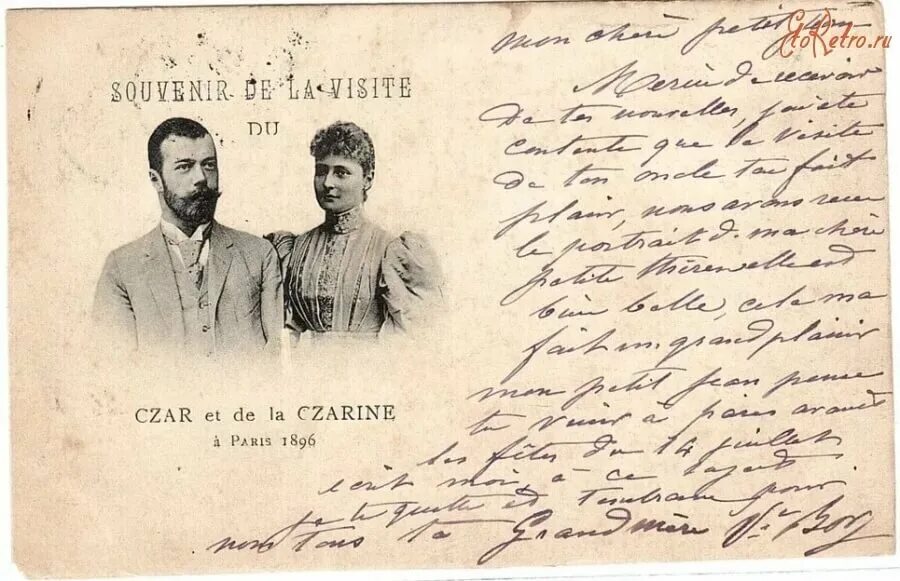 SOUVENIR DE LA VISITE
DU
CZAR et de la CZARINE
à PARIS 1896
EtoRetro.ru
mon chère petit
Merci de recevoir
de tes nouvelles, j'ai été
contente que la visite
de ton oncle t'ai fait
plaisir, nous avons recu
le portrait d. ma chère
petite elle est
bien belle, cela ma
fait un grand plaisir
mon petit Jean pense
tu venir à paris avant
les fêtes du 14 juillet
ecrit moi, à ce sujet
je te quitte et pour
nous tous ta Grand mère